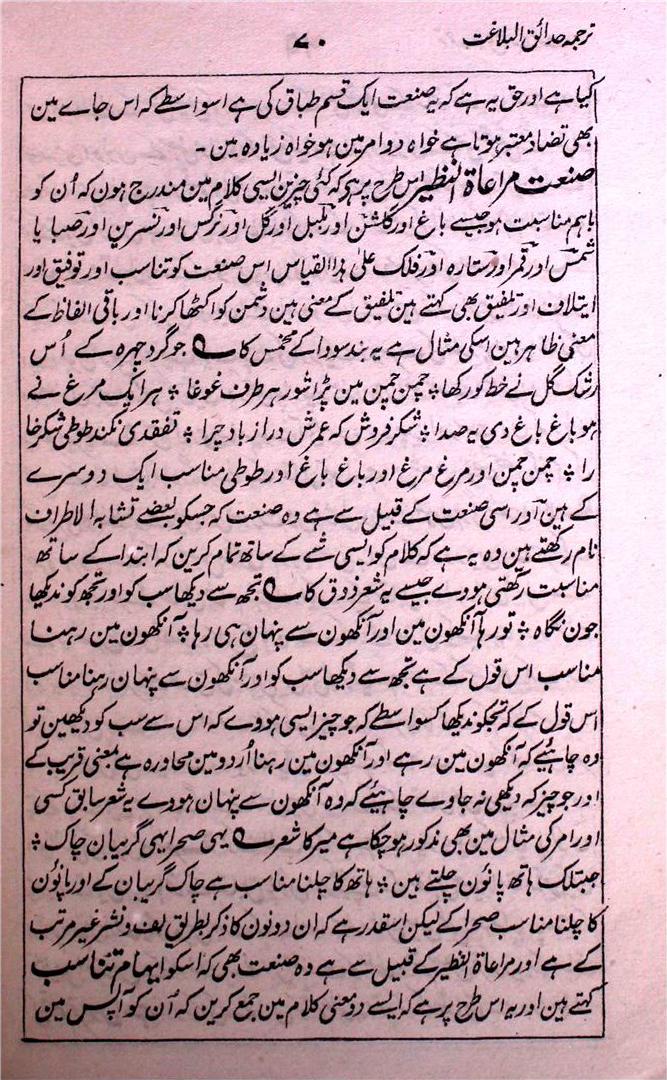 ترجمہ حدائق البلاغت
۷۰
کیا ہے اور حق یہ ہے کہ یہ صنعت ایک قسم طباق کی ہے اسواسطے کہ اس جاے مین
بھی تضاد معتبر ہوتا ہے خواہ دو امر مین ہو خواہ زیادہ مین ۔
صنعت مراعاۃ النظیر اس طرح پر ہی کہ کئی چیزین ایسی کلام مین مندرج ہون کہ اُن کو
باہم مناسبت ہو جیسے باغ اور گلشن اور بلبل اور گل اور نرگس اور نسرین اور صبا یا
شمس اور قمر اور ستارہ اور فلک علیٰ ہذا القیاس اس صنعت کو تناسب اور توفیق اور
ایتلاف اور تلفیق بھی کہتے ہین تلفیق کے معنی ہین دشمن کو اکٹھا کرنا اور باقی الفاظ کے
معنی ظاہر ہین اسکی مثال ہے یہ بند سودا کے مخمس کا ؎ جو گرد چہرہ کے اُس
رشک گل نے خط کو رکھا ؞ چمن چمن مین پڑا شور ہر طرف غوغا ؞ ہر ایک مرغ نے
ہو باغ باغ دی یہ صدا ؞ شکر فروش کہ عمرش دراز باد چرا ؞ تفقدی نکند طوطی شکر خا
را ؞ چمن چمن اور مرغ مرغ اور باغ باغ اور طوطی مناسب ایک دوسرے
کے ہین اور اسی صنعت کے قبیل سے ہے وہ صنعت کہ جسکو بعضے تشابہ الاطراف
نام رکھتے ہین وہ یہ ہے کہ کلام کو ایسی شے کے ساتھ تمام کرین کہ ابتدا کے ساتھ
مناسبت رکھتی ہووے جیسے یہ شعر ذوق کا ؎ تجھ سے دیکھا سب کو اور تجھ کو ندیکھا
جون نگاہ ؞ تو رہا آنکھون مین اور آنکھون سے پنہان ہی رہا ؞ آنکھون مین رہنا
مناسب اس قول کے ہے تجھ سے دیکھا سب کو اور آنکھون سے پنہان رہنا مناسب
اس قول کے کہ تجکو ندیکھا کسواسطے کہ جو چیز ایسی ہووے کہ اس سے سب کو دیکھین تو
وہ چاہئیے کہ آنکھون مین رہے اور آنکھون مین رہنا اُردو مین محاورہ ہے بمعنی قریب کے
اور جو چیز کہ دیکھی نہ جاوے چاہئیے کہ وہ آنکھون سے پنہان ہووے یہ شعر سابق کسی
اور امر کی مثال مین بھی مذکور ہو چکا ہے میر کا شعر ؎ یہی صحرا یہی گریبان چاک ؞
جبتلک ہاتھ پائون چلتے ہین ؞ ہاتھ کا چلنا مناسب ہے چاک گریبان کے اور پائون
کا چلنا مناسب صحرا کے لیکن اسقدر ہے کہ ان دونون کا ذکر بطریق لف و نشر غیر مرتب
کے ہے اور مراعاۃ النظیر کے قبیل سے ہے وہ صنعت بھی کہ اسکو ایہام تناسب
کہتے ہین اور یہ اس طرح پر ہے کہ ایسے دو معنی کلام مین جمع کرین کہ اُن کو آپس مین